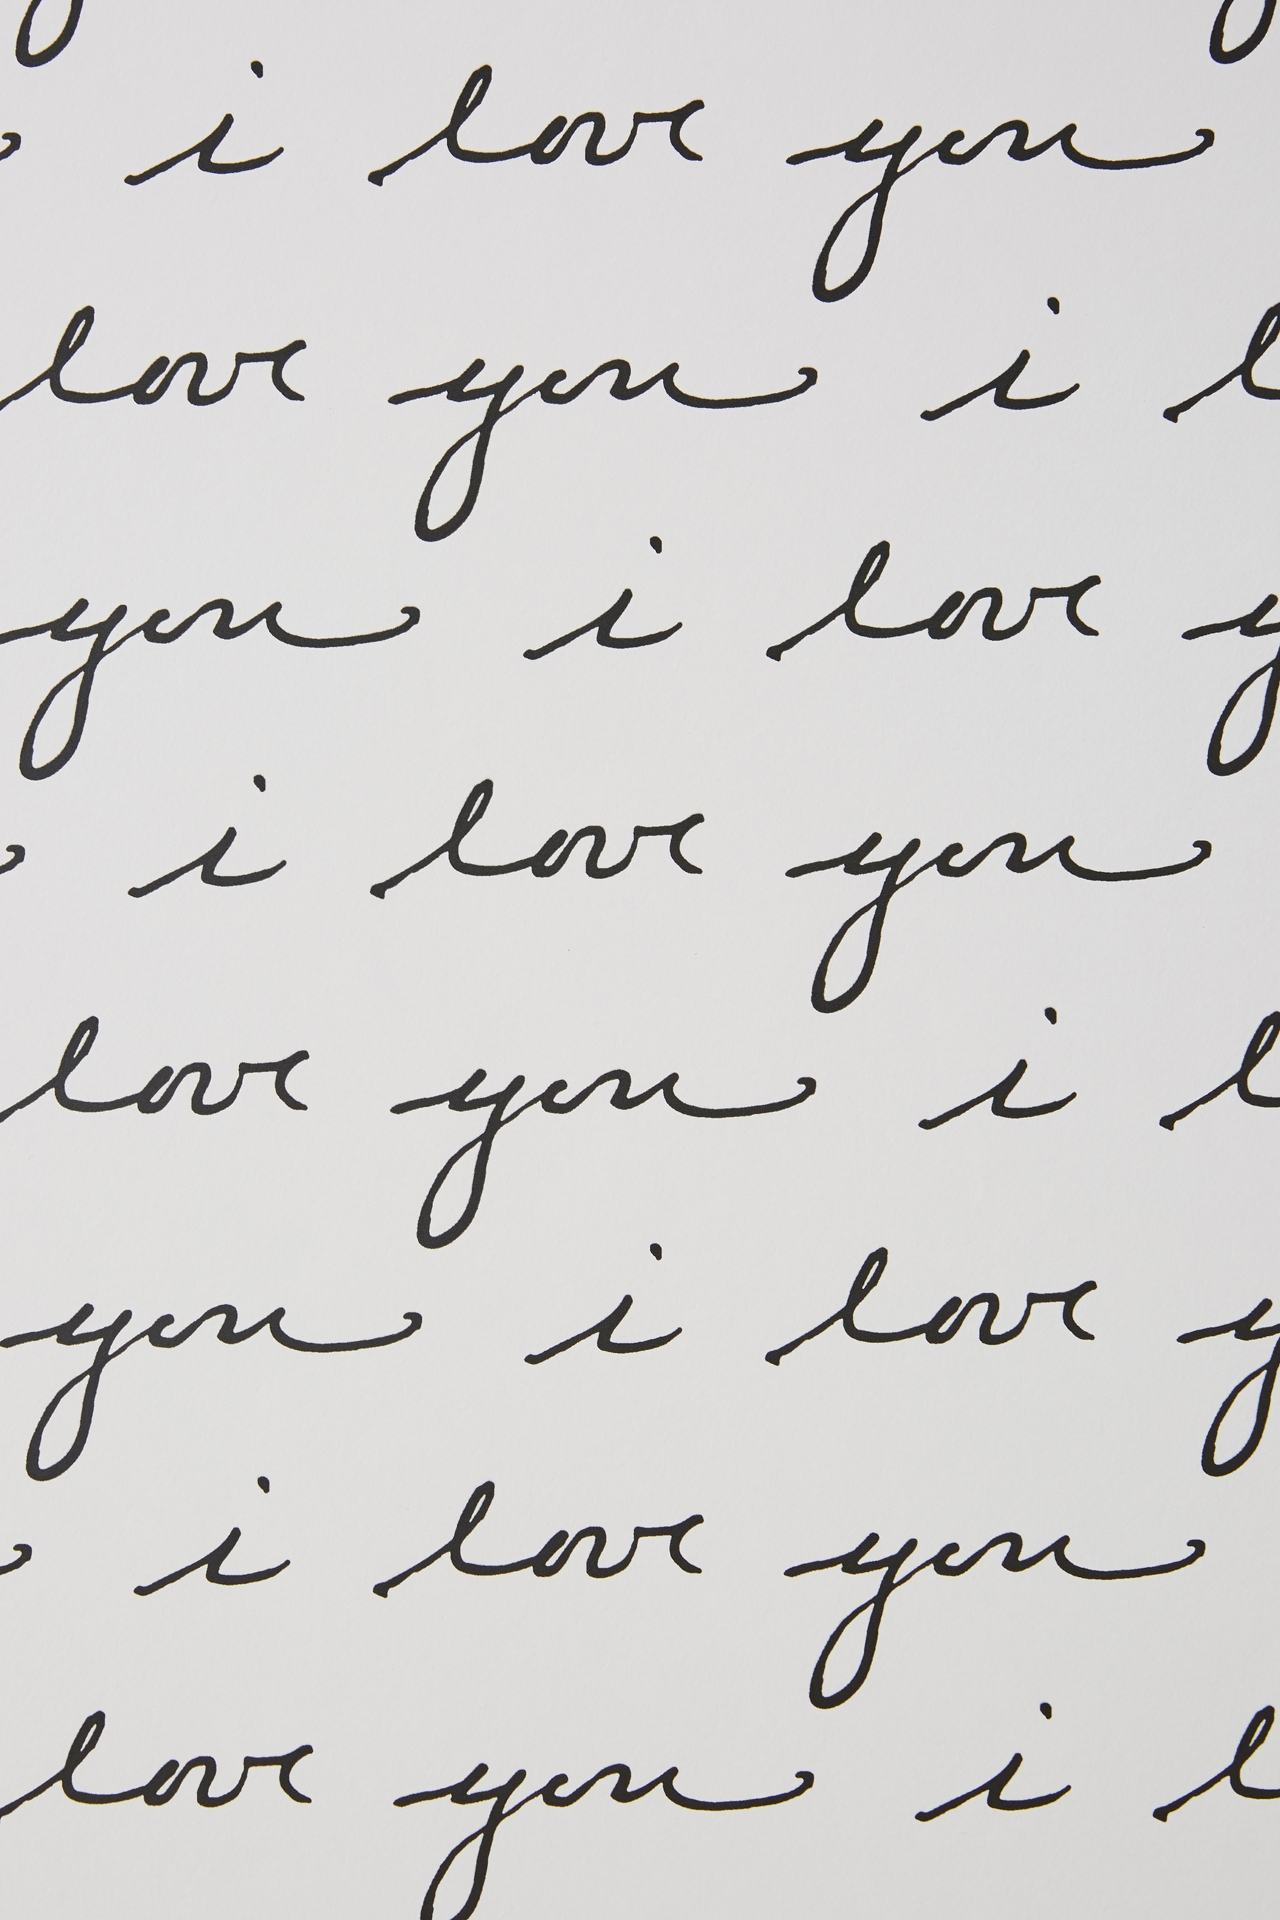 i love you
love you i l
you i love y
i love you
love you i l
you i love y
i love you
love you i l